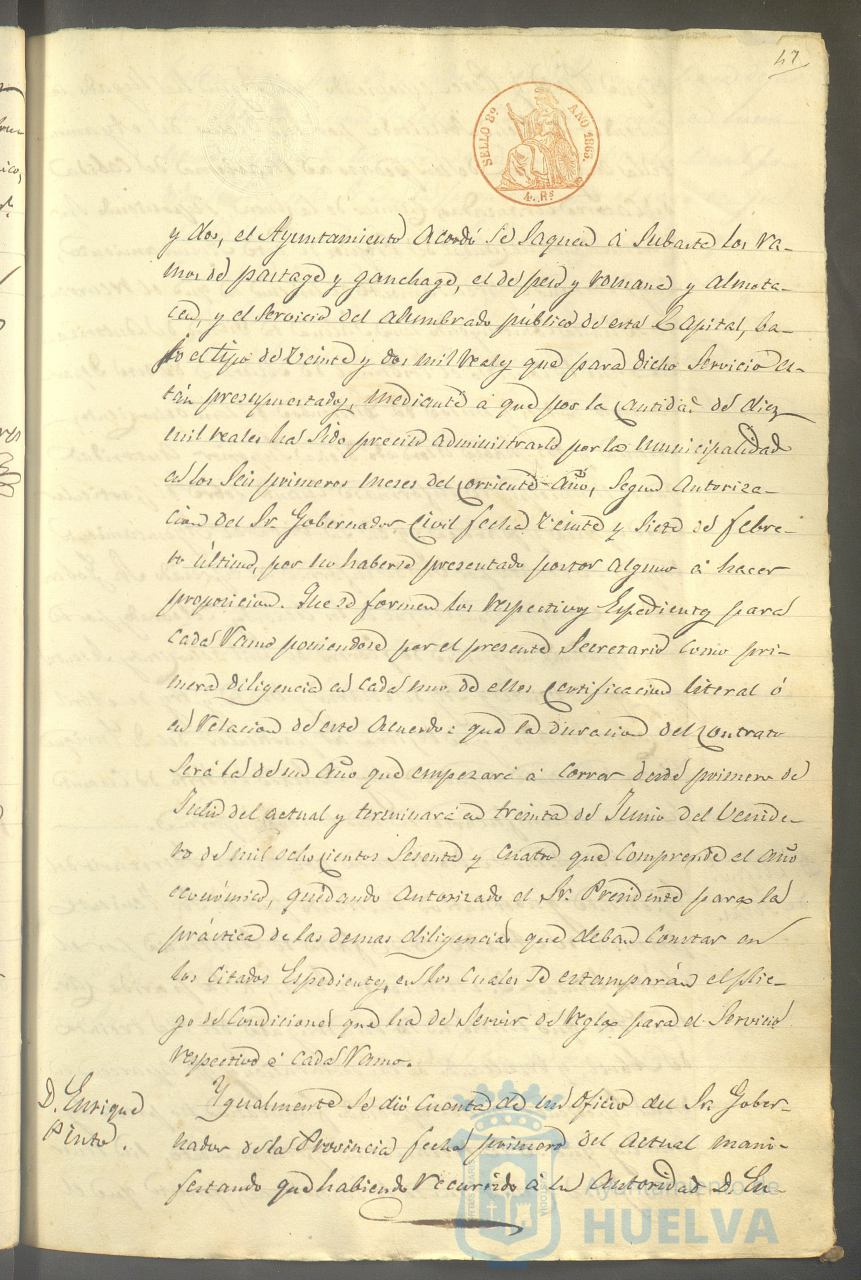 47
SELLO 8º AÑO 1863.
4. Rs
y dos, el Ayuntamiento acordó se saquen á subasta los ra-
mos de partage y ganchage, el de peso y romana y almota-
cen, y el servicio del alumbrado público de esta Capital, ba-
jo el tipo de veinte y dos mil reales que para dicho servicio es-
tán presupuestados, mediante á que por la cantidad de diez
mil reales ha sido preciso administrarlo por la municipalidad
en los seis primeros meses del corriente año, segun autoriza-
cion del Sr. Gobernador Civil fecha veinte y siete de febre-
ro último, por no haberse presentado postor alguno á hacer
proposicion. Que se formen los respectivos Espedientes para
cada ramo poniendose por el presente Secretario como pri-
mera diligencia en cada uno de ellos certificacion literal ó
en relacion de este acuerdo: que la duracion del contrato
será la de un año que empezará á correr desde primero de
Julio del actual y terminará en treinta de Junio del venide-
ro de mil ochocientos sesenta y cuatro que comprende el año
económico, quedando autorizado el Sr. Presidente para la
práctica de las demas diligencias que deban constar en
los citados Espedientes, en los cuales se estamparán el plie-
go de condiciones que ha de servir de regla para el servicio
respectivo á cada ramo.
D. Enrique
Pinto.
Ygualmente se dió cuenta de un oficio del Sr. Gober-
nador de la Provincia fecha primero del actual mani-
festando que habiendo recurrido á su autoridad D. En-
Ayuntamiento de
HUELVA